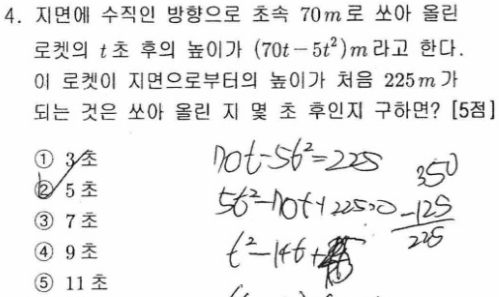 4. 지면에 수직인 방향으로 초속 70m로 쏘아 올린
로켓의 t초 후의 높이가 (70t-5t²)m라고 한다.
이 로켓이 지면으로부터의 높이가 처음 225m가
되는 것은 쏘아 올린 지 몇 초 후인지 구하면? [5점]
① 3초
② 5초
③ 7초
④ 9초
⑤ 11초
70t-5t²=225
5t²-70t+225=0
t²-14t+
350
-125
225